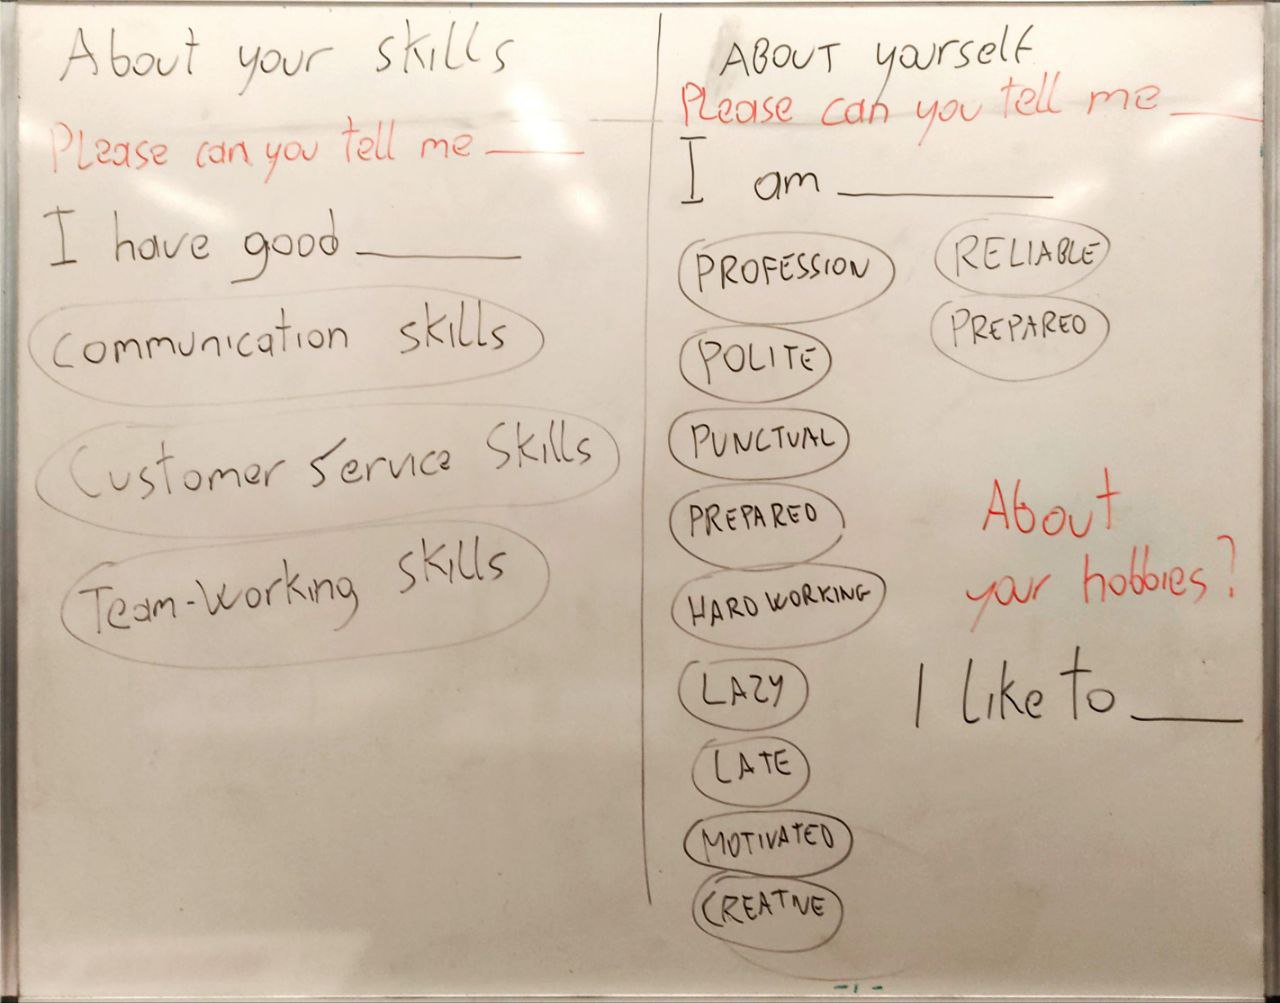 About your skills
Please can you tell me ____
I have good ____
Communication skills
Customer Service Skills
Team-Working skills
ABOUT yourself
Please can you tell me ____
I am ____
PROFESSION
POLITE
PUNCTUAL
PREPARED
HARD WORKING
LAZY
LATE
MOTIVATED
CREATIVE
RELIABLE
PREPARED
About
your hobbies?
I like to ____